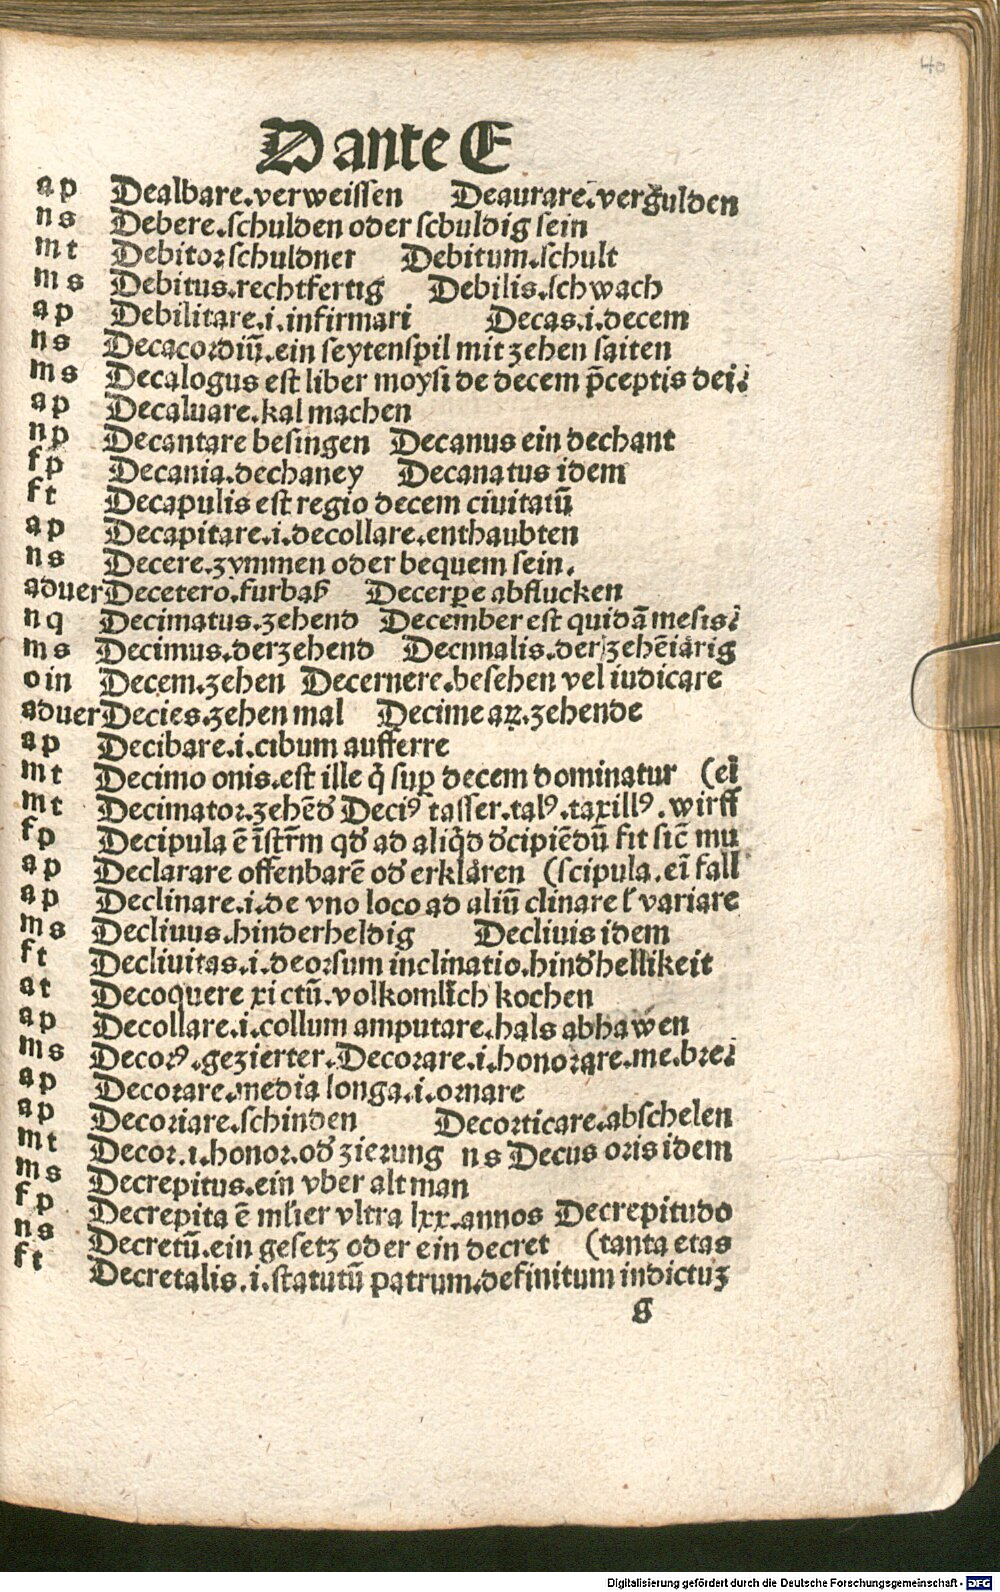 40
D ante E
ap Dealbare.verweissen Deaurare.vergulden
ns Debere.schulden oder schuldig sein
mt Debitor schuldner Debitum.schult
ms Debitus.rechtfertig Debilis.schwach
ap Debilitare.i.infirmari Decas.i.decem
ns Decacordiū.ein seytenspil mit zehen saiten
ms Decalogus est liber moysi de decem p̄ceptis dei
ap Decaluare.kal machen
np Decantare besingen Decanus ein dechant
fp Decania.dechaney Decanatus idem
ft Decapulis est regio decem ciuitatū
ap Decapitare.i.decollare.enthaubten
ns Decere.zymmen oder bequem sein.
aduer Decetero.furbaß Decerpe abflucken
nq Decimatus.zehend December est quidā mēsis
ms Decimus.derzehend Decinnalis.der zehēiärig
oin Decem.zehen Decernere.besehen vel iudicare
aduer Decies.zehen mal Decime aꝝ.zehende
ap Decibare.i.cibum aufferre
mt Decimo onis.est ille q̇ suꝑ decem dominatur (eī
mt Decimator.zehēd' Deciꝰ tasser.talꝰ.taxillꝰ.wirff
fp Decipula ē īstrm̄ qd' ad aliq̇d d'cipiēdū fit sic̄ mu
ap Declarare offenbarē od' erklären (scipula.eī fall
ap Declinare.i.de vno loco ad aliū clinare ł variare
ms Decliuus.hinderheldig Decliuis idem
ft Decliuitas.i.deorsum inclinatio.hind'hellikeit
at Decoquere xi ctū.volkomlīch kochen
ap Decollare.i.collum amputare.hals abhawen
ms Decorꝰ.gezierter.Decorare.i.honorare.me.bre
ap Decorare.media longa.i.ornare
ap Decoriare.schinden Decorticare.abschelen
mt Decor.i.honor.od' zierung ns Decus oris idem
ms Decrepitus.ein vber alt man
fp Decrepita ē ml'ier vltra lxx.annos Decrepitudo
ns Decretū.ein gesetz oder ein decret (tanta etas
ft Decretalis.i.statutū patrum.definitum indictuꝫ
g
Digitalisierung gefördert durch die Deutsche Forschungsgemeinschaft - DFG